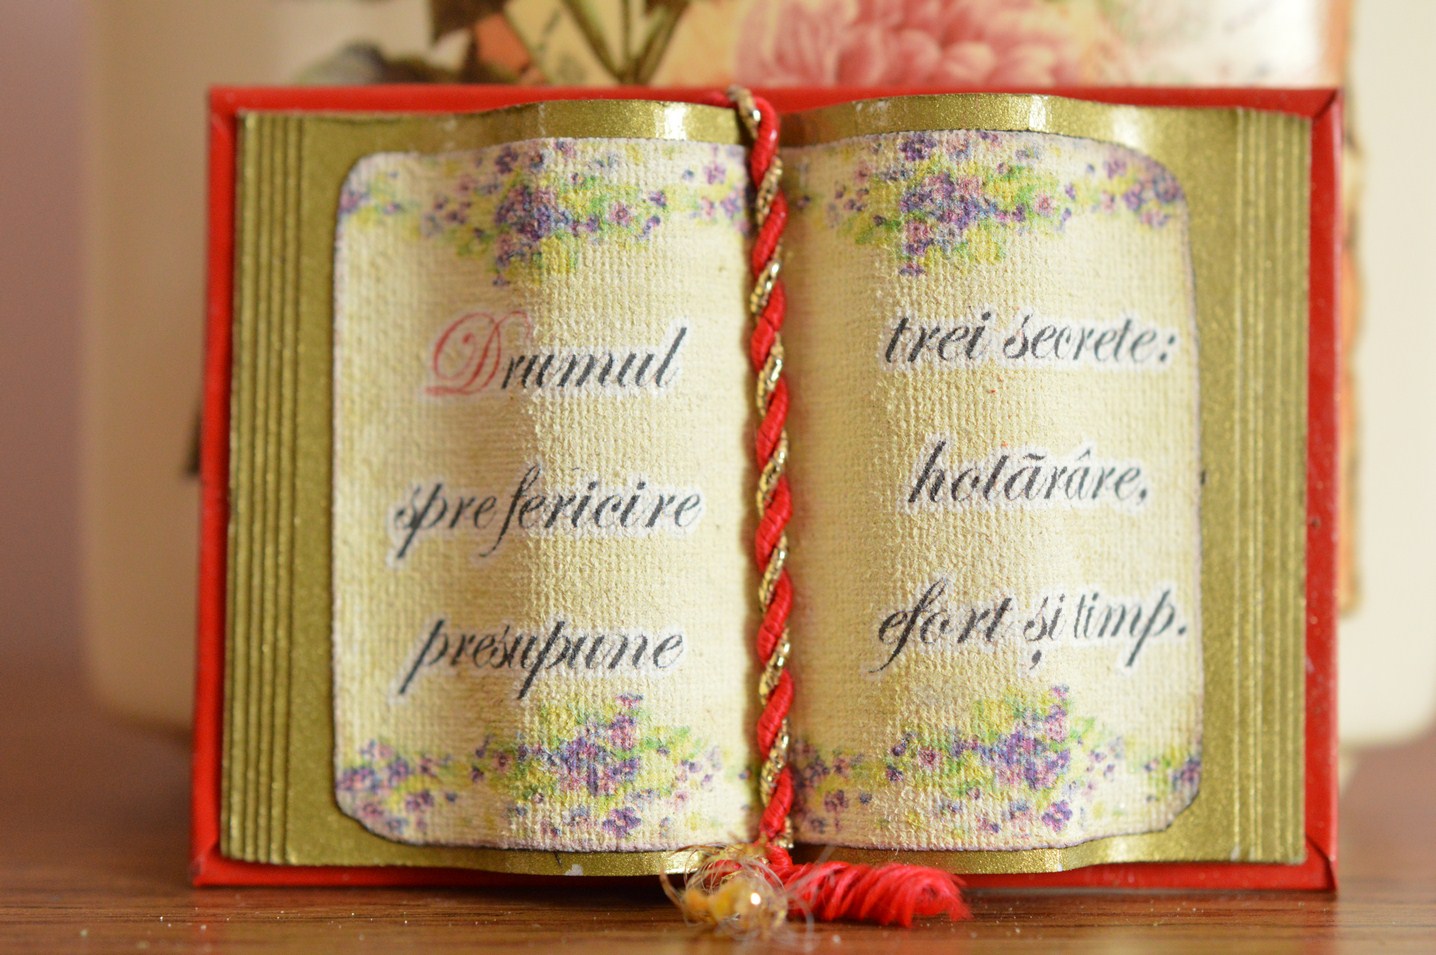 Drumul
spre fericire
presupune
trei secrete:
hotãrâre,
efort și timp.